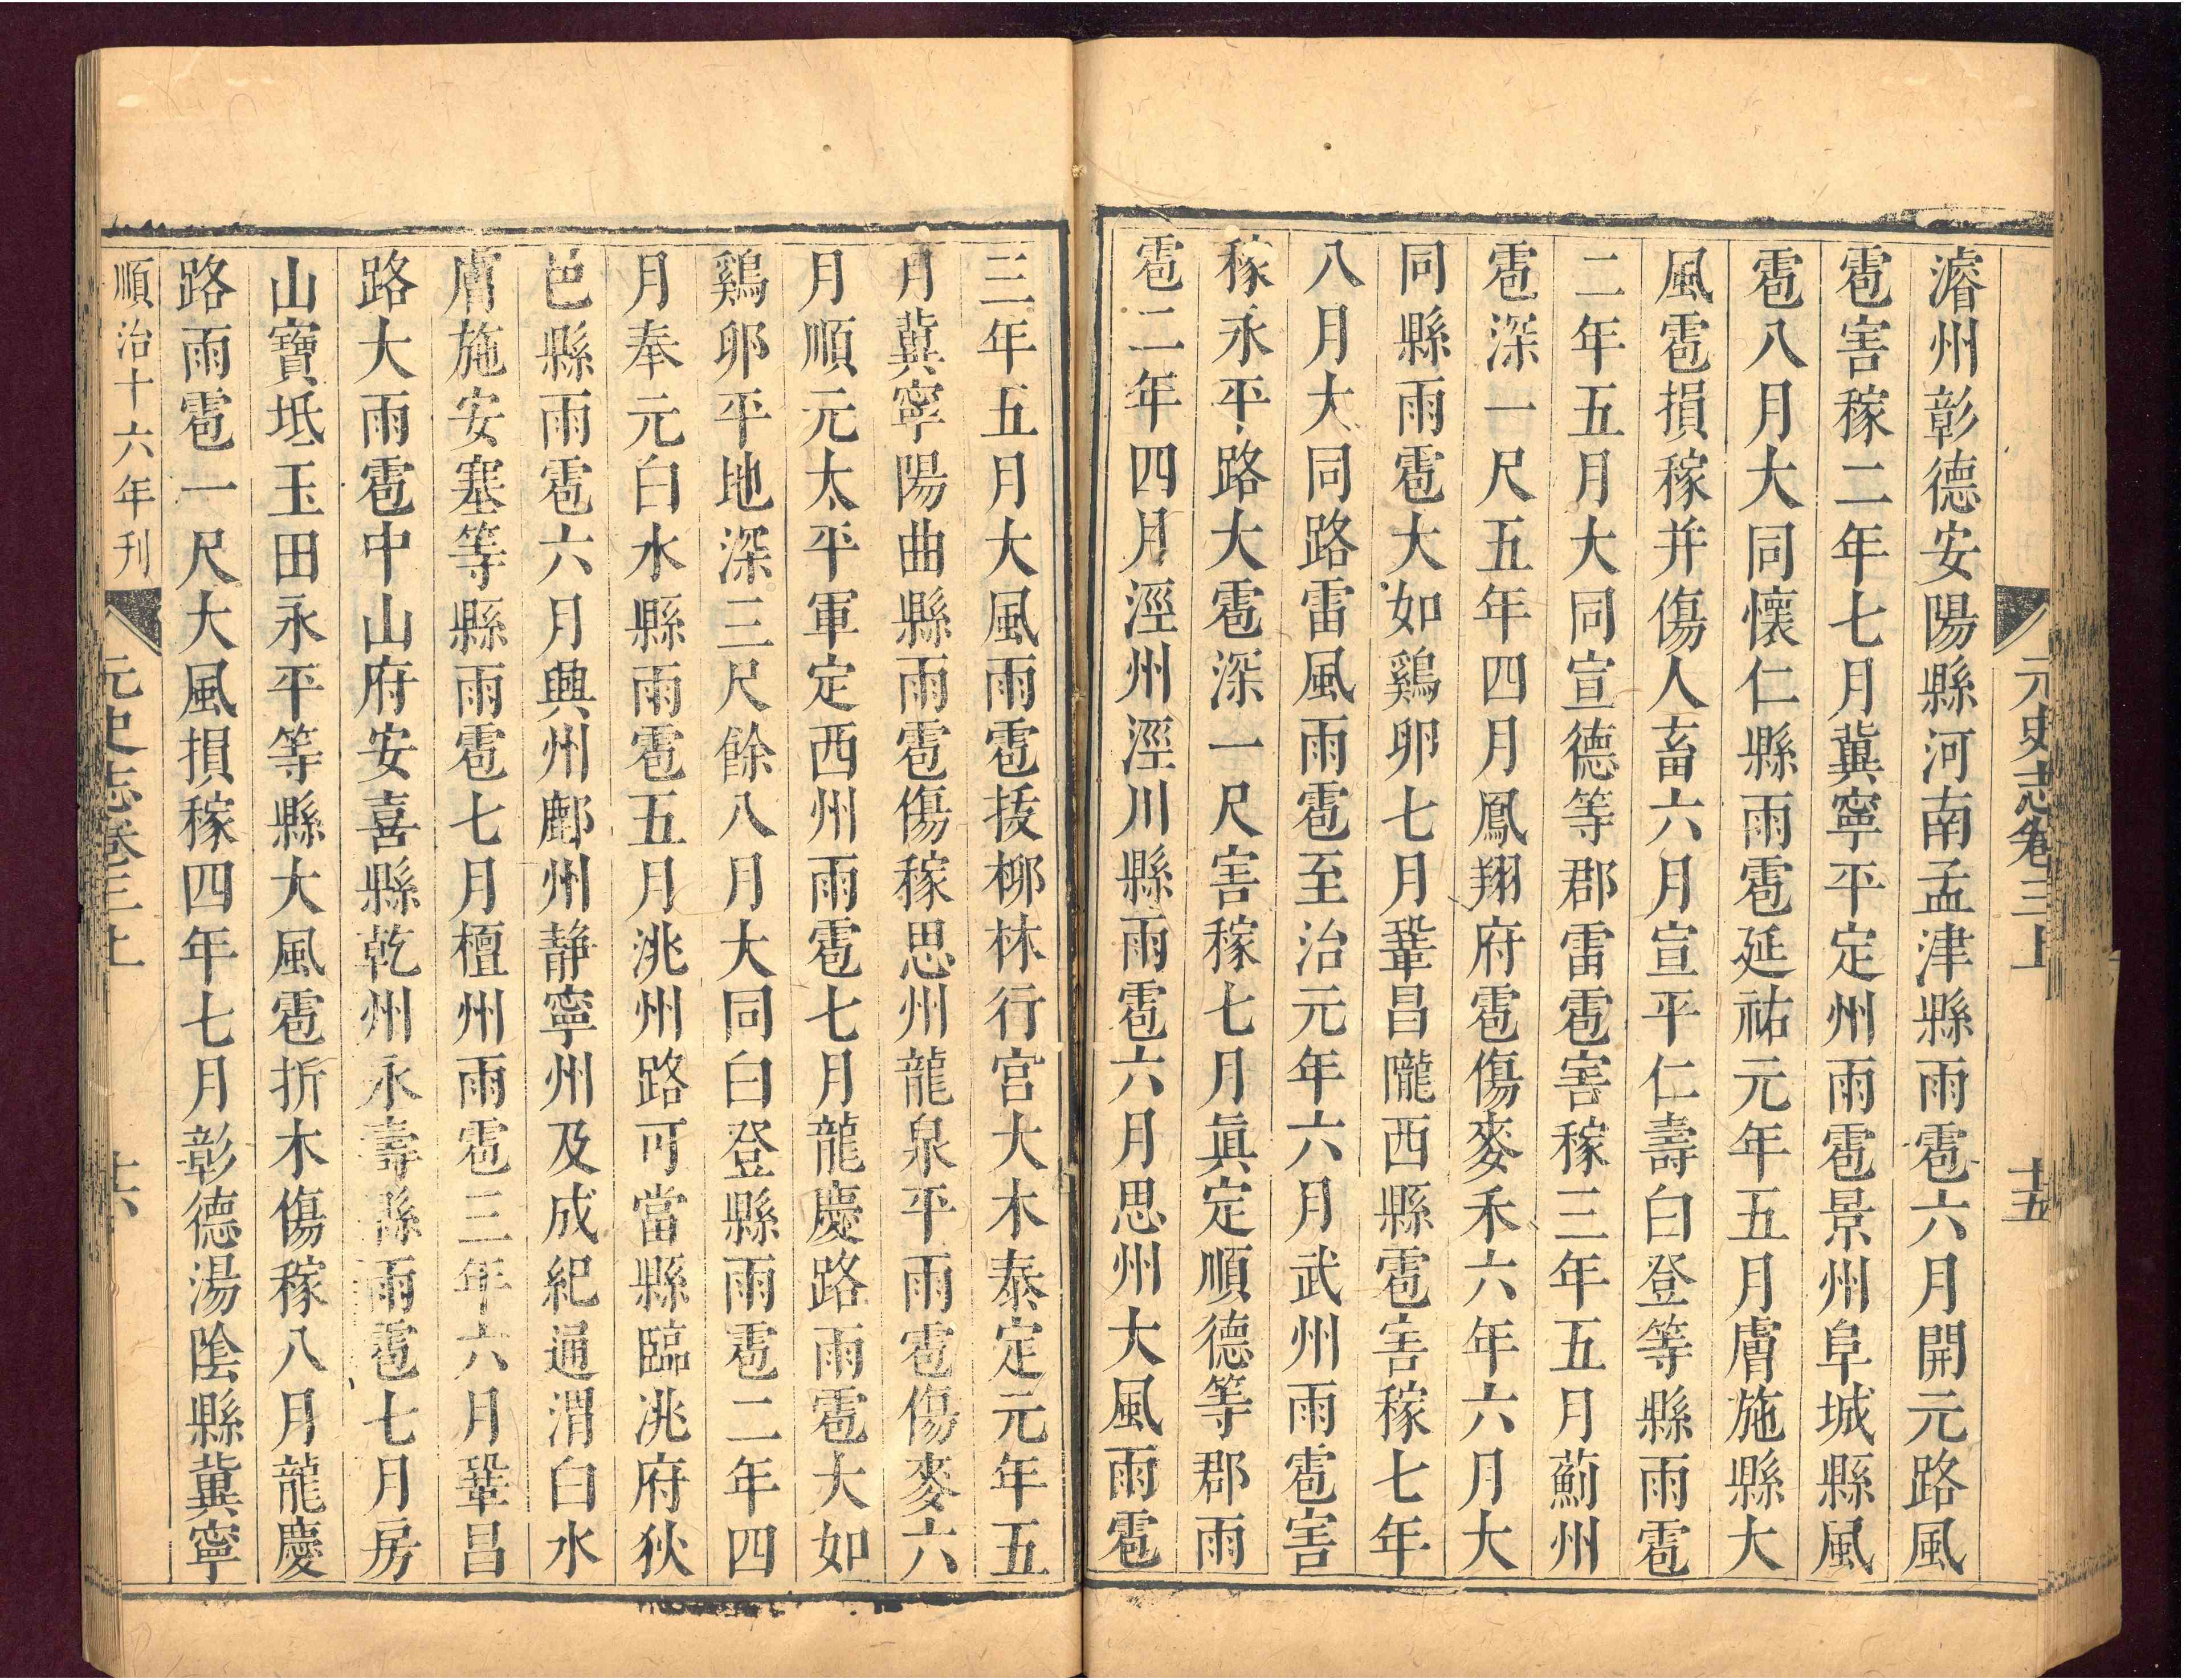 元史志卷三上 十五
濬州彰德安陽縣河南孟津縣雨雹六月開元路風
雹害稼二年七月冀寧平定州雨雹景州阜城縣風
雹八月大同懷仁縣雨雹延祐元年五月膚施縣大
風雹損稼并傷人畜六月宣平仁壽白登等縣雨雹
二年五月大同宣德等郡雷雹害稼三年五月薊州
雹深一尺五年四月鳳翔府雹傷麥禾六年六月大
同縣雨雹大如鷄卵七月鞏昌隴西縣雹害稼七年
八月大同路雷風雨雹至治元年六月武州雨雹害
稼永平路大雹深一尺害稼七月眞定順德等郡雨
雹二年四月涇州涇川縣雨雹六月思州大風雨雹
三年五月大風雨雹拔柳林行宮大木泰定元年五
月冀寧陽曲縣雨雹傷稼思州龍泉平雨雹傷麥六
月順元太平軍定西州雨雹七月龍慶路雨雹大如
鷄卵平地深三尺餘八月大同白登縣雨雹二年四
月奉元白水縣雨雹五月洮州路可當縣臨洮府狄
邑縣雨雹六月興州鄜州靜寧州及成紀通渭白水
膚施安塞等縣雨雹七月檀州雨雹三年六月鞏昌
路大雨雹中山府安喜縣乾州永壽縣雨雹七月房
山寶坻玉田永平等縣大風雹折木傷稼八月龍慶
路雨雹一尺大風損稼四年七月彰德湯陰縣冀寧
順治十六年刊 元史志卷三上 十六